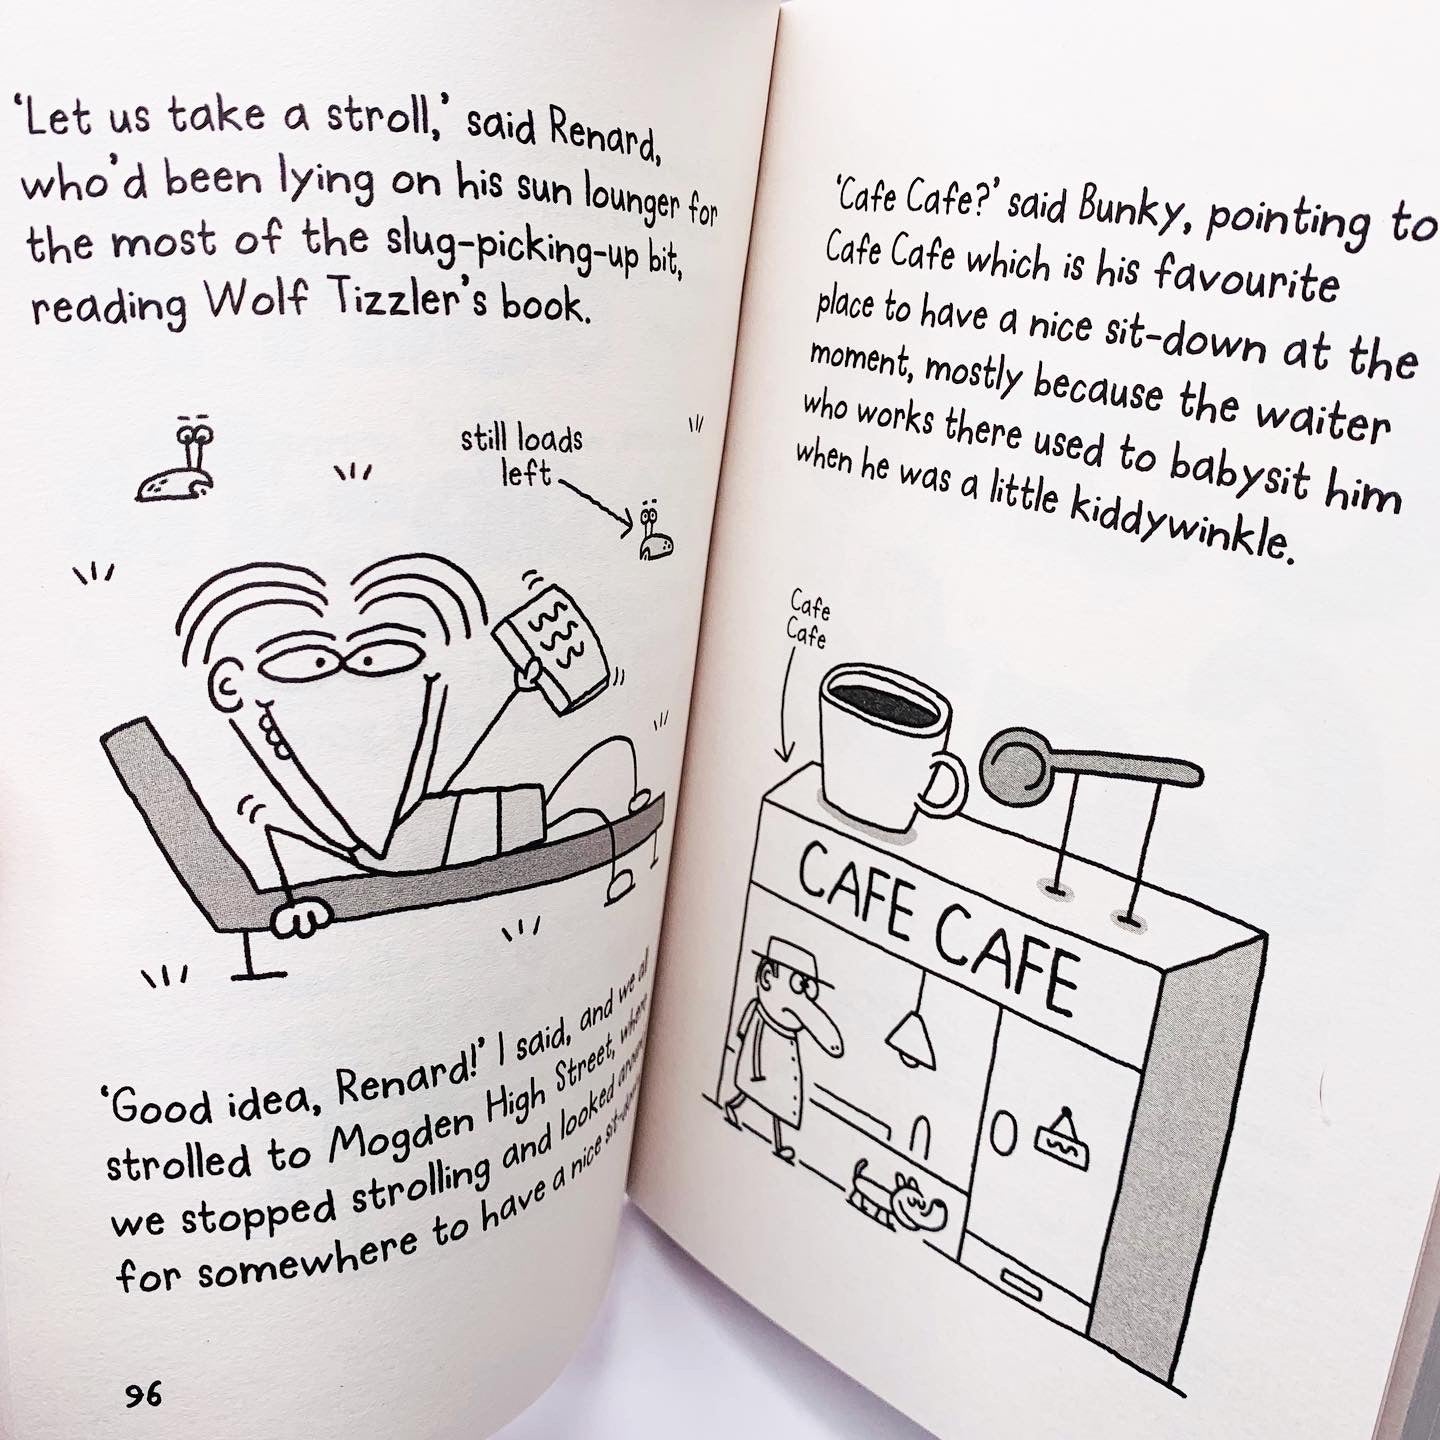 ‘Let us take a stroll,’ said Renard,
who’d been lying on his sun lounger for
the most of the slug-picking-up bit,
reading Wolf Tizzler’s book.
still loads
left
‘Good idea, Renard!’ I said, and we all
strolled to Mogden High Street, where
we stopped strolling and looked around
for somewhere to have a nice sit-down
96
‘Cafe Cafe?’ said Bunky, pointing to
Cafe Cafe which is his favourite
place to have a nice sit-down at the
moment, mostly because the waiter
who works there used to babysit him
when he was a little kiddywinkle.
Cafe
Cafe
CAFE CAFE